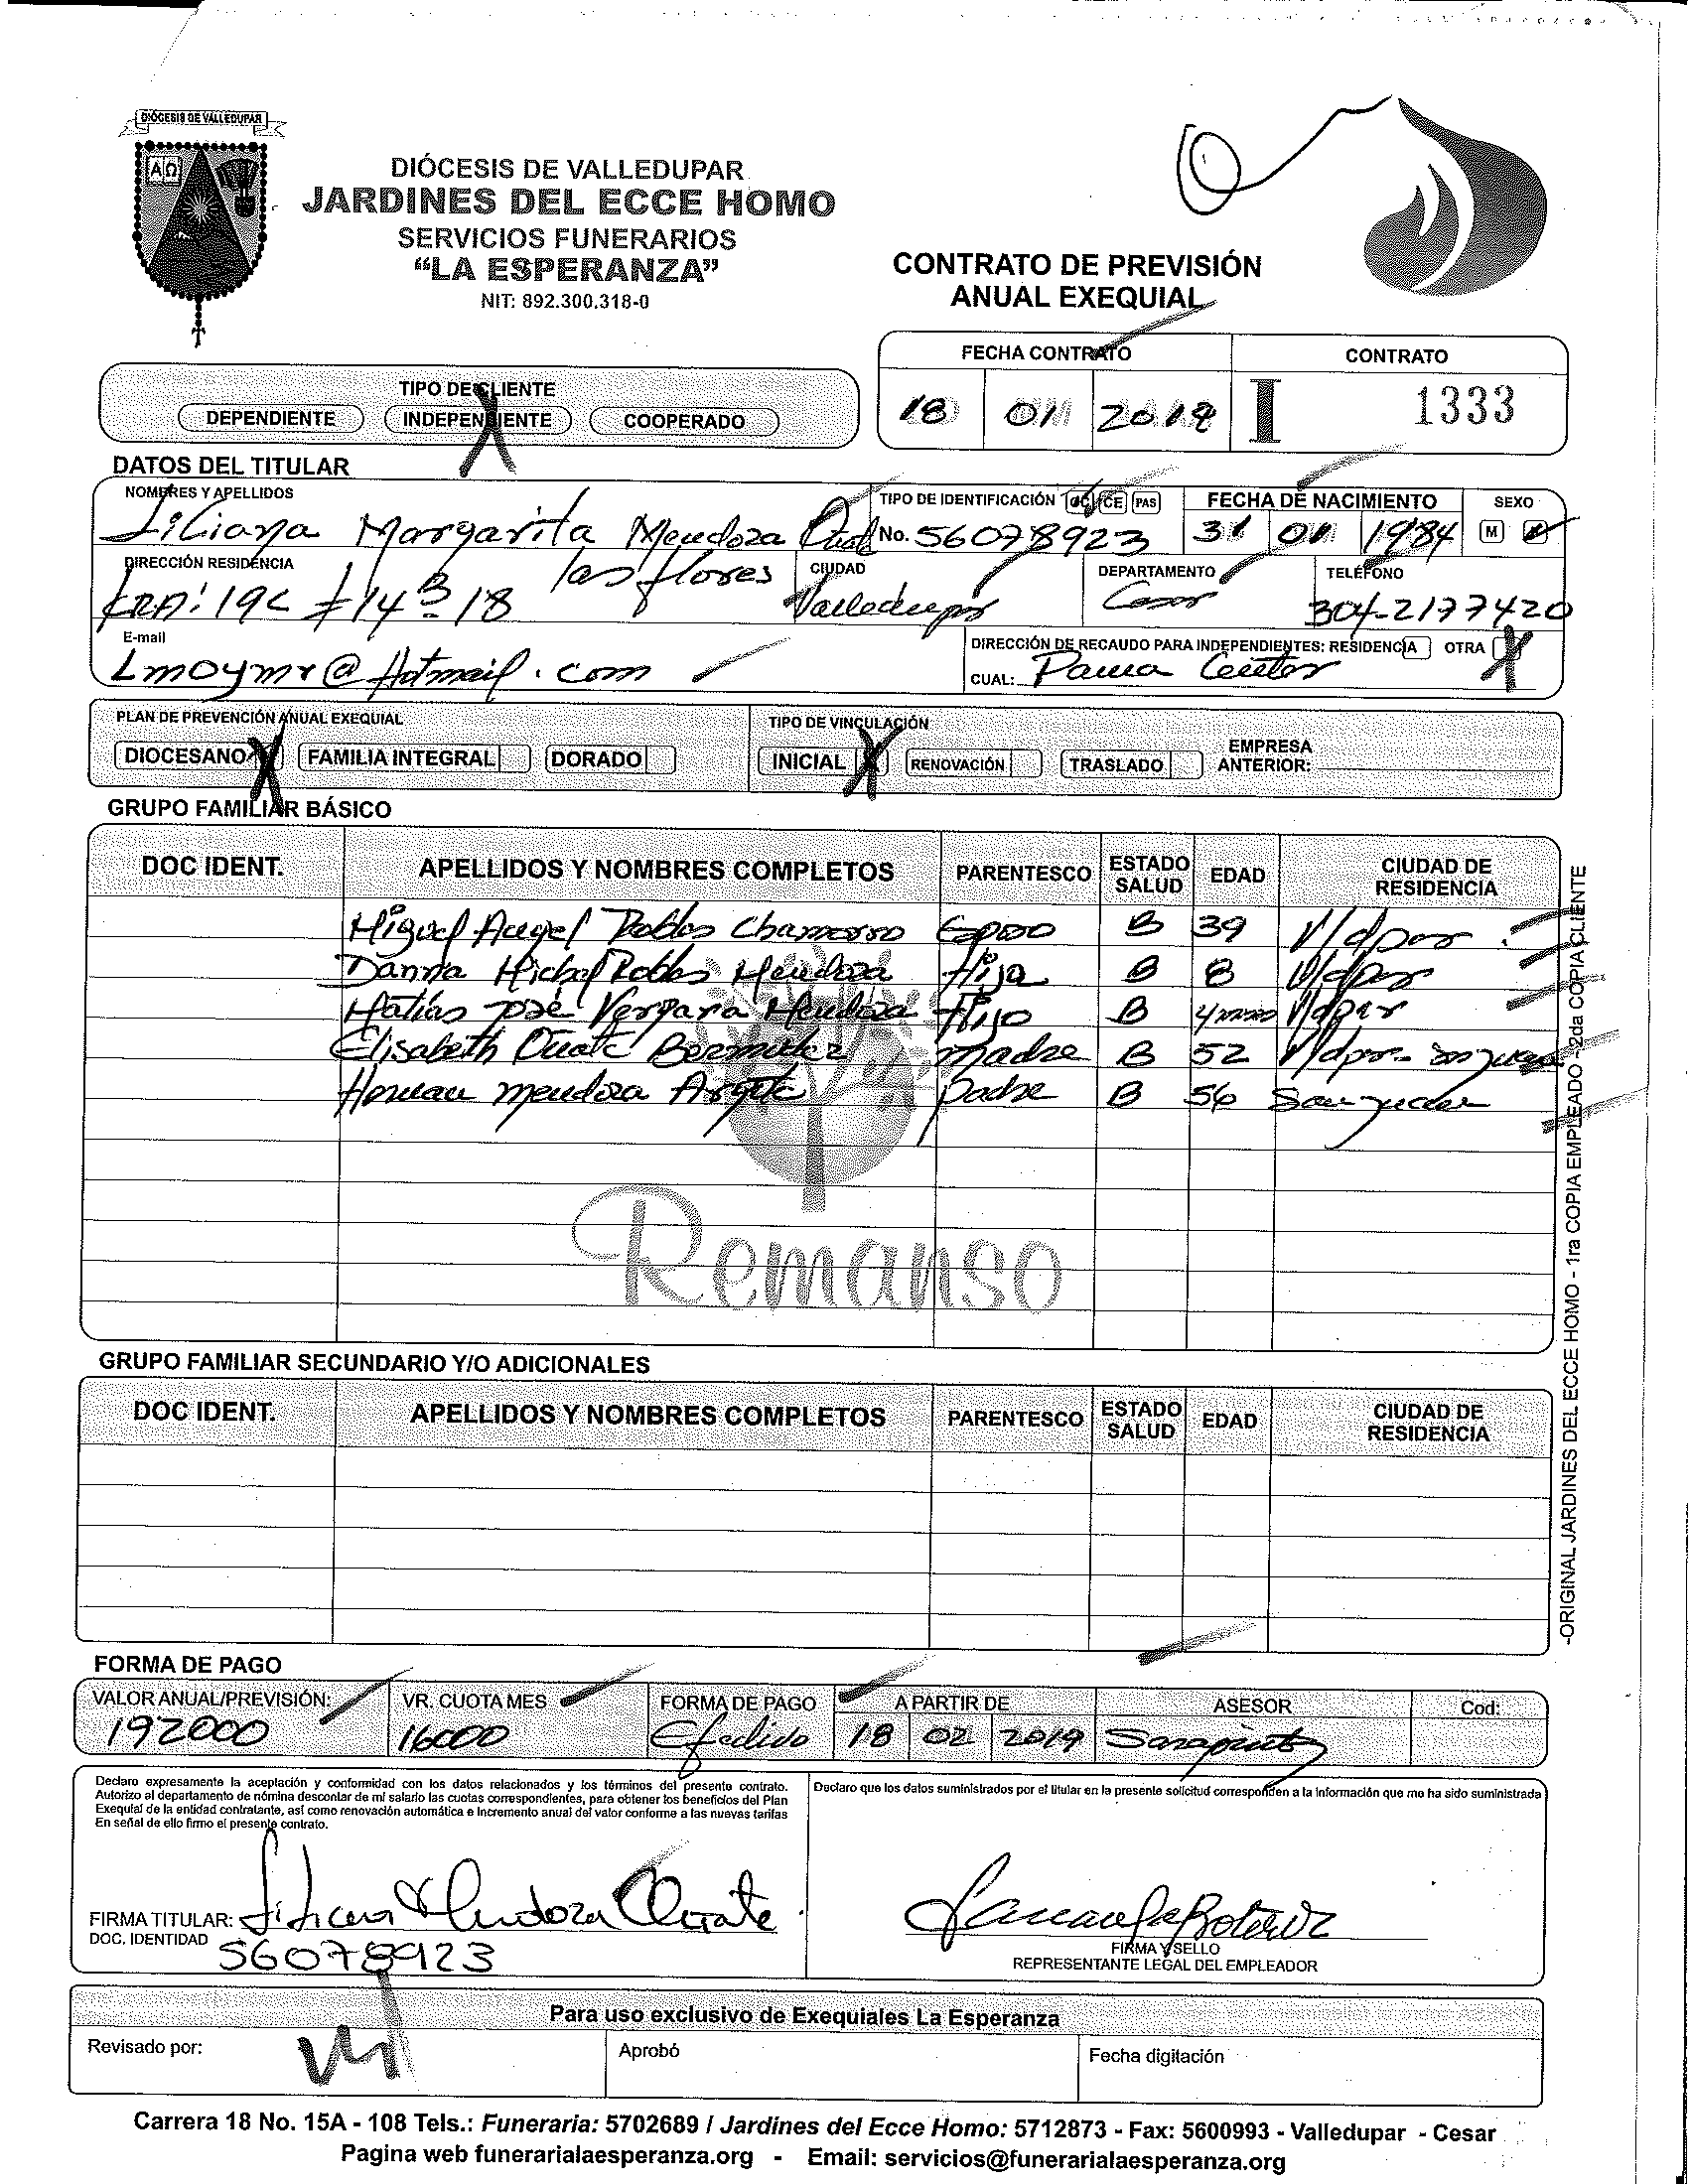 DIÓCESIS DE VALLEDUPAR
ΑΩ
DIÓCESIS DE VALLEDUPAR
JARDINES DEL ECCE HOMO
SERVICIOS FUNERARIOS
“LA ESPERANZA”
NIT: 892.300.318-0
CONTRATO DE PREVISIÓN
ANUAL EXEQUIAL
FECHA CONTRATO CONTRATO
18 01 2019 I 1333
TIPO DE CLIENTE
DEPENDIENTE INDEPENDIENTE X COOPERADO
DATOS DEL TITULAR
NOMBRES Y APELLIDOS TIPO DE IDENTIFICACIÓN CC CE PAS FECHA DE NACIMIENTO SEXO
Liliana Margarita Mendoza Oñate No. 56078923 31 01 1984 M
DIRECCIÓN RESIDENCIA CIUDAD DEPARTAMENTO TELÉFONO
KRA: 19C #14B-18 las flores Valledupar Cesar 304-2177420
E-mail DIRECCIÓN DE RECAUDO PARA INDEPENDIENTES: RESIDENCIA OTRA X
Lmoymr@Hotmail.com CUAL:
PLAN DE PREVENCIÓN ANUAL EXEQUIAL TIPO DE VINCULACIÓN
DIOCESANO X FAMILIA INTEGRAL DORADO INICIAL X RENOVACIÓN TRASLADO EMPRESA ANTERIOR:
GRUPO FAMILIAR BÁSICO
DOC IDENT. APELLIDOS Y NOMBRES COMPLETOS PARENTESCO ESTADO SALUD EDAD CIUDAD DE RESIDENCIA
Miguel Angel Robles Chamorro Esposo B 39 V/dpar
Danna Michel Robles Mendoza Hija B 8 V/dpar
Matías José Vergara Mendoza Hijo B 4 V/dpar
Elisabeth Oñate Bermudez madre B 52 V/dpar
Hernan Mendoza padre B 56 San
Remanso
GRUPO FAMILIAR SECUNDARIO Y/O ADICIONALES
DOC IDENT. APELLIDOS Y NOMBRES COMPLETOS PARENTESCO ESTADO SALUD EDAD CIUDAD DE RESIDENCIA
-ORIGINAL JARDINES DEL ECCE HOMO - 1ra COPIA EMPLEADO - 2da COPIA CLIENTE
FORMA DE PAGO
VALOR ANUAL/PREVISIÓN: VR. CUOTA MES FORMA DE PAGO A PARTIR DE ASESOR Cod:
192000 16000 18 02 2019
Declaro expresamente la aceptación y conformidad con los datos relacionados y los términos del presente contrato.
Autorizo al departamento de nómina descontar de mi salario las cuotas correspondientes, para obtener los beneficios del Plan
Exequial de la entidad contratante, así como renovación automática e incremento anual del valor conforme a las nuevas tarifas
En señal de ello firmo el presente contrato.
Declaro que los datos suministrados por el titular en la presente solicitud corresponden a la información que me ha sido suministrada
FIRMA TITULAR: Liliana Mendoza Oñate
DOC. IDENTIDAD 56078923
FIRMA Y SELLO
REPRESENTANTE LEGAL DEL EMPLEADOR
Para uso exclusivo de Exequiales La Esperanza
Revisado por: Aprobó Fecha digitación
Carrera 18 No. 15A - 108 Tels.: Funeraria: 5702689 / Jardines del Ecce Homo: 5712873 - Fax: 5600993 - Valledupar - Cesar
Pagina web funerarialaesperanza.org - Email: servicios@funerarialaesperanza.org